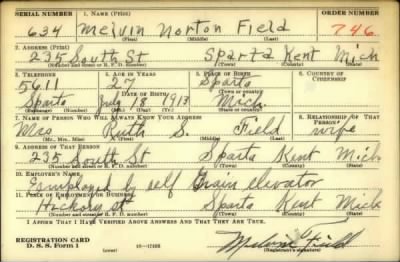 SERIAL NUMBER 1. NAME (Print) ORDER NUMBER
634 Melvin Norton Field 746
(First) (Middle) (Last)
2. ADDRESS (Print)
235 South St Sparta Kent Mich
(Number and street or R. F. D. number) (Town) (County) (State)
3. TELEPHONE 4. AGE IN YEARS 5. PLACE OF BIRTH 6. COUNTRY OF CITIZENSHIP
5611 27 Sparta
DATE OF BIRTH
Sparta July 18 1913 Mich.
(Exchange) (Number) (Mo.) (Day) (Yr.) (State or country)
7. NAME OF PERSON WHO WILL ALWAYS KNOW YOUR ADDRESS 8. RELATIONSHIP OF THAT PERSON
Mrs Ruth S. Field wife
(Mr., Mrs., Miss) (First) (Middle) (Last)
9. ADDRESS OF THAT PERSON
235 South St Sparta Kent Mich
(Number and street or R. F. D. number) (Town) (County) (State)
10. EMPLOYER'S NAME
Employed by self Grain elevator
11. PLACE OF EMPLOYMENT OR BUSINESS
Hickory st Sparta Kent Mich
(Number and street or R. F. D. number) (Town) (County) (State)
I AFFIRM THAT I HAVE VERIFIED ABOVE ANSWERS AND THAT THEY ARE TRUE.
REGISTRATION CARD
D. S. S. Form 1
Melvin Field